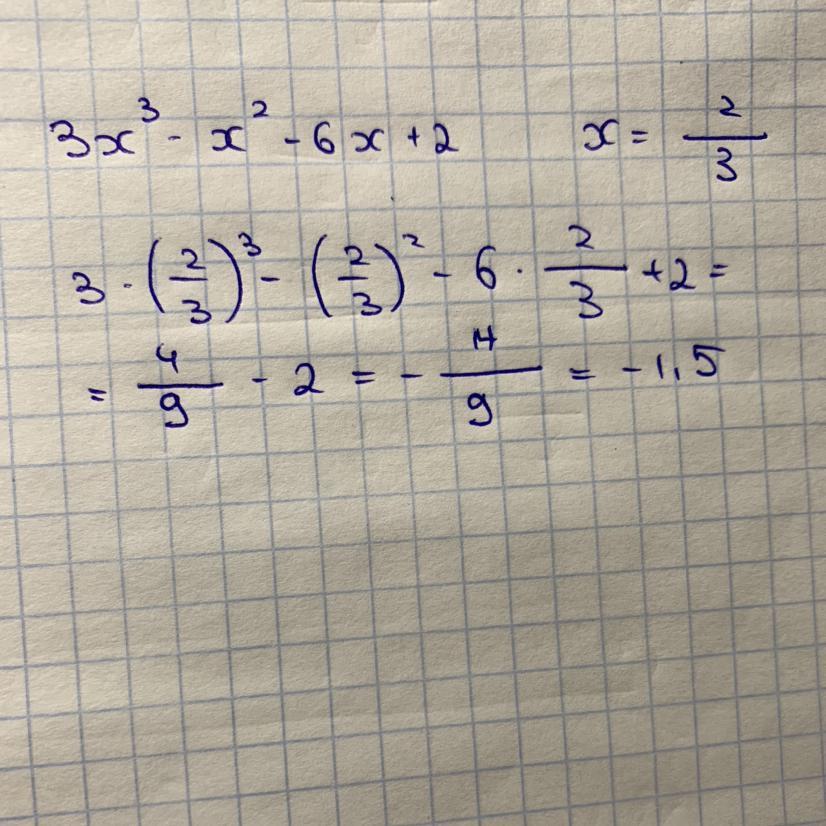 3x³ - x² - 6x + 2 x = 2/3
3 · (2/3)³ - (2/3)² - 6 · 2/3 + 2 =
= 4/9 - 2 = - 14/9 = - 1,5